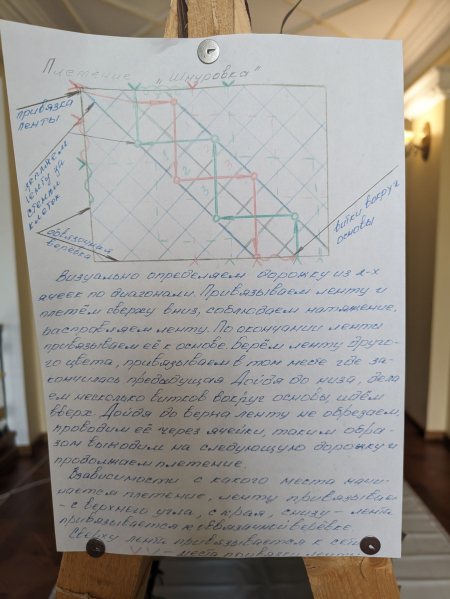 Плетение „Шнуровка"
привязка
ленты
цепляем
ленту за
стенки
клеток
обвязочная
верёвка
витки вокруг
основы
1
2
3
2
3
Визуально определяем дорожку из 2-х
ячеек по диагонали. Привязываем ленту и
плетём сверху вниз, соблюдаем натяжение,
расправляем ленту. По окончании ленты
привязываем её к основе. Берём ленту друго-
го цвета, привязываем в том месте где за-
кончилась предыдущая. Дойдя до низа, дела
ем несколько витков вокруг основы, идём
вверх. Дойдя до верха ленту не обрезаем,
проводим её через ячейки, таким обра-
зом выходим на следующую дорожку и
продолжаем плетение.
Взависимости с какого места начи-
нается плетение, ленту привязывае
- с верхнего угла, с края, снизу - лента
привязывается к обвязочной верёвке.
Сверху лента привязывается к сет
- места привязки ленты